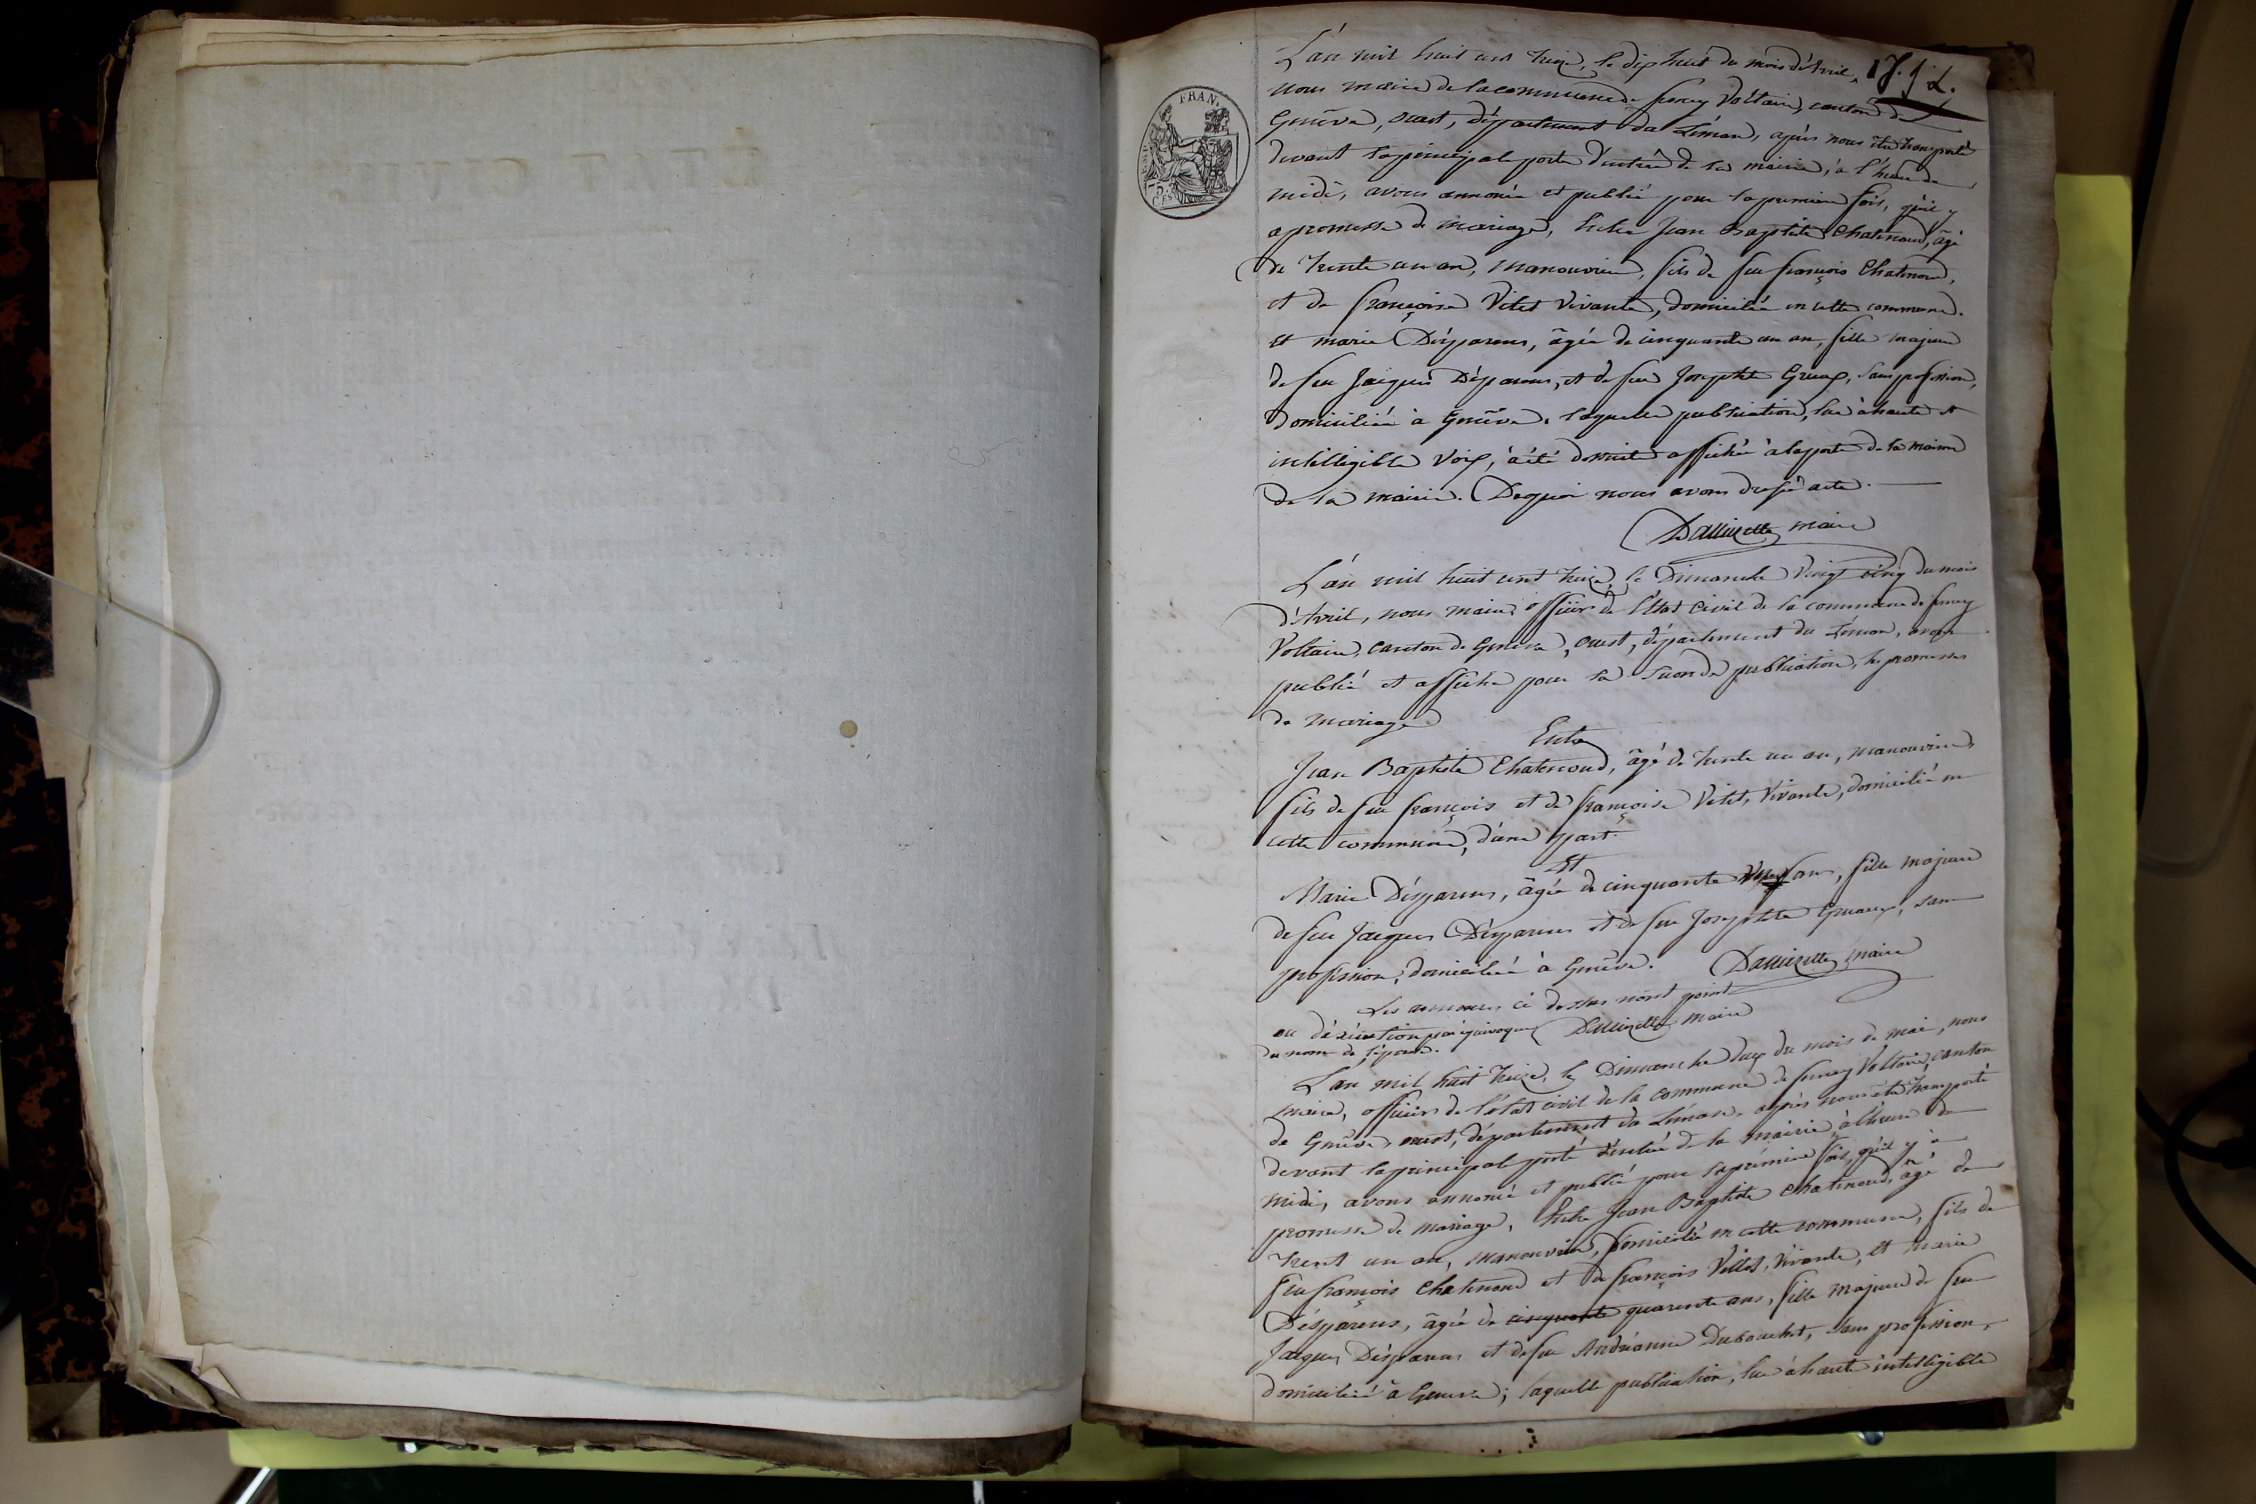 L'an mil huit cent treize, le dix huit du mois d'Avril,
nous maire de la commune de ferney Voltaire, canton de
Genêve, ouest, département du Léman, après nous être transporté
devant la principale porte d'entrée de la mairie, à l'heure de
midi, avons annoncé et publié pour la premiere fois, qu'il y
a promesse de mariage, Entre Jean Baptiste Chatenoud, âgé
de trente un an, manouvrier, fils de feu françois Chatenoud,
et de françoise Vitet vivante, domicilié en cette commune.
et marie Désparens, âgée de cinquante un an, fille majeure
de feu Jacques Désparens, et de feu Josephte Gruaz, sans profession,
domiciliée à Genêve. laquelle publication, lue à haute et
intelligible voix, à été ensuite affichée à la porte de la maison
de la mairie. De quoi nous avons dressé acte.
maire
FRAN.
75
L'an mil huit cent treize, le Dimanche vingt cinq du mois
d'Avril, nous maire, officier de l'état civil de la commune de ferney
Voltaire, canton de Genêve, ouest, département du Léman, avons
publié et affiché pour la seconde publication, les promesses
de mariage
Entre
Jean Baptiste Chatenoud, âgé de trente un an, manouvrier,
fils de feu françois et de françoise Vitet, vivante, domicilié en
cette commune, d'une part.
Et
Marie Désparens, âgée de cinquante un an, fille majeure
de feu Jacques Désparens et de feu Josephte Gruaz, sans
profession, domiciliée à Genêve. maire
Les annonces ci dessus n'ont point
eu d'éxécution par équivoque maire
du nom de l'épouse.
L'an mil huit treize, le Dimanche deux du mois de mai, nous
maire, officier de l'état civil de la commune de ferney Voltaire, canton
de Genêve, ouest, département du Léman, après nous être transporté
devant la principale porte d'entrée de la mairie, à l'heure de
midi, avons annoncé et publié pour la première fois, qu'il y a
promesse de mariage, Entre Jean Baptiste Chatenoud, âgé de
trente un an, manouvrier, domicilié en cette commune, fils de
feu françois Chatenoud et de françoise Vitet, vivante, et marie
Désparens, âgée de cinquante quarente ans, fille majeure de feu
Jacques Désparens et de feu Andréanne Dubouchet, sans profession,
domiciliée à Geneve; laquelle publication, lue à haute intelligible